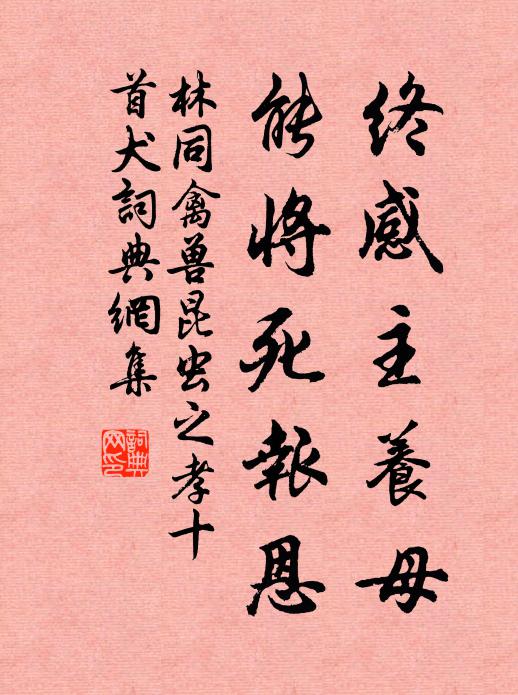 終感主養母
能將死報恩
林同禽兽昆虫之孝十
首犬詞典網集
詞典
网印